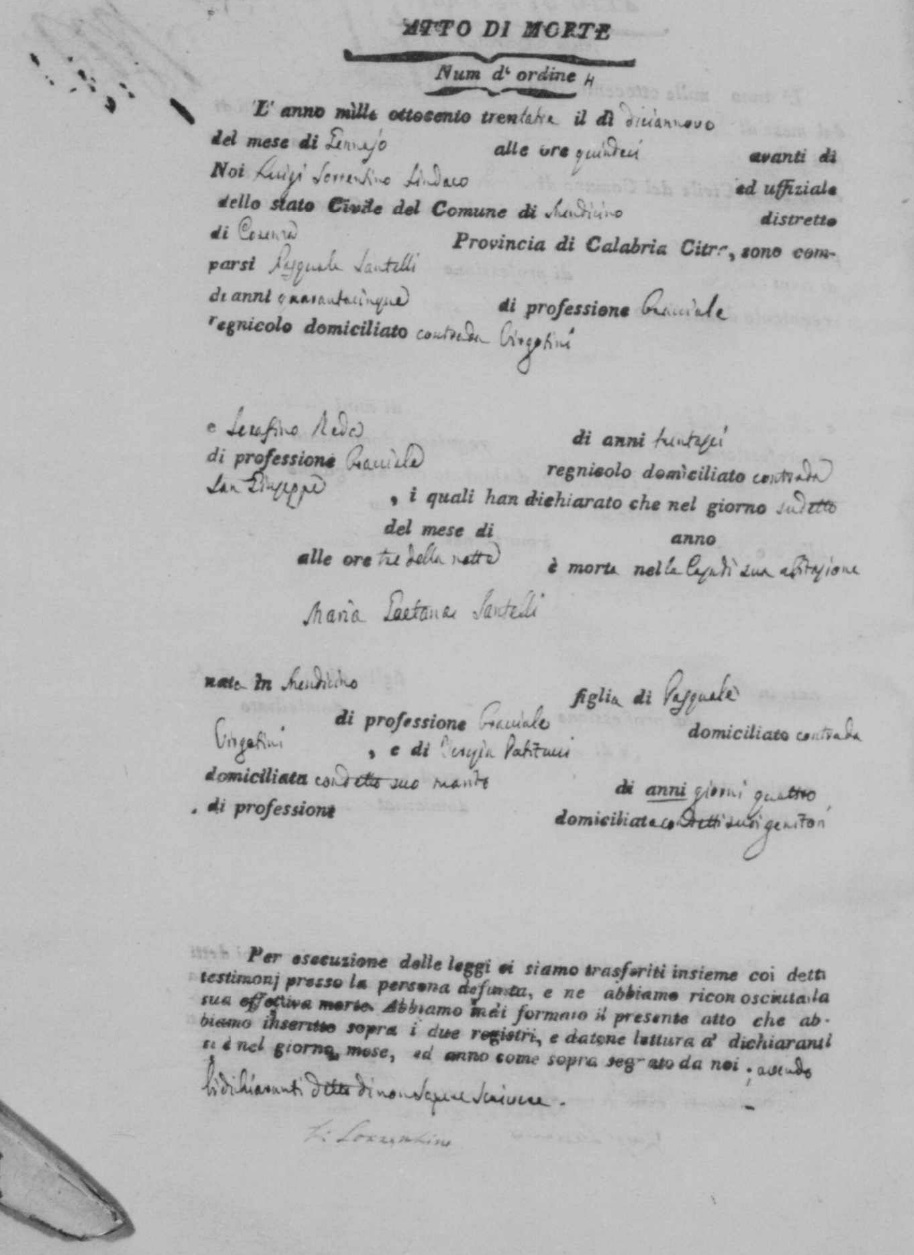 ATTO DI MORTE
Num d' ordine 4
L' anno mille ottocento trentatre il dì diciannove
del mese di Gennajo alle ore quindeci avanti di
Noi Luigi Sorrentino Sindaco ed uffiziale
dello stato Civile del Comune di Mendicino distretto
di Cosenza Provincia di Calabria Citra, sono com-
parsi Pasquale Santelli
di anni quarantacinque di professione Bracciale
regnicolo domiciliato contrada
e Serafino Reda di anni trentasei
di professione Bracciale regnicolo domiciliato contrada
San Giuseppe , i quali han dichiarato che nel giorno sudetto
del mese di anno
alle ore tre della notte è morta nella Casa di sua abitazione
Maria Gaetana Santelli
nata in Mendicino figlia di Pasquale
di professione Bracciale domiciliato contrada
, e di Patitucci
domiciliata con detto suo marito di anni giorni quattro
. di professione domiciliata con detti suoi genitori
Per esecuzione delle leggi ci siamo trasferiti insieme coi detti
testimonj presso la persona defunta, e ne abbiamo riconosciuta la
sua effettiva morte. Abbiamo indi formato il presente atto che ab-
biamo inscritto sopra i due registri, e datone lettura a' dichiaranti
si è nel giorno, mese, ed anno come sopra segnato da noi ; avendo
li dichiaranti detto di non sapere scrivere.
L. Sorrentino